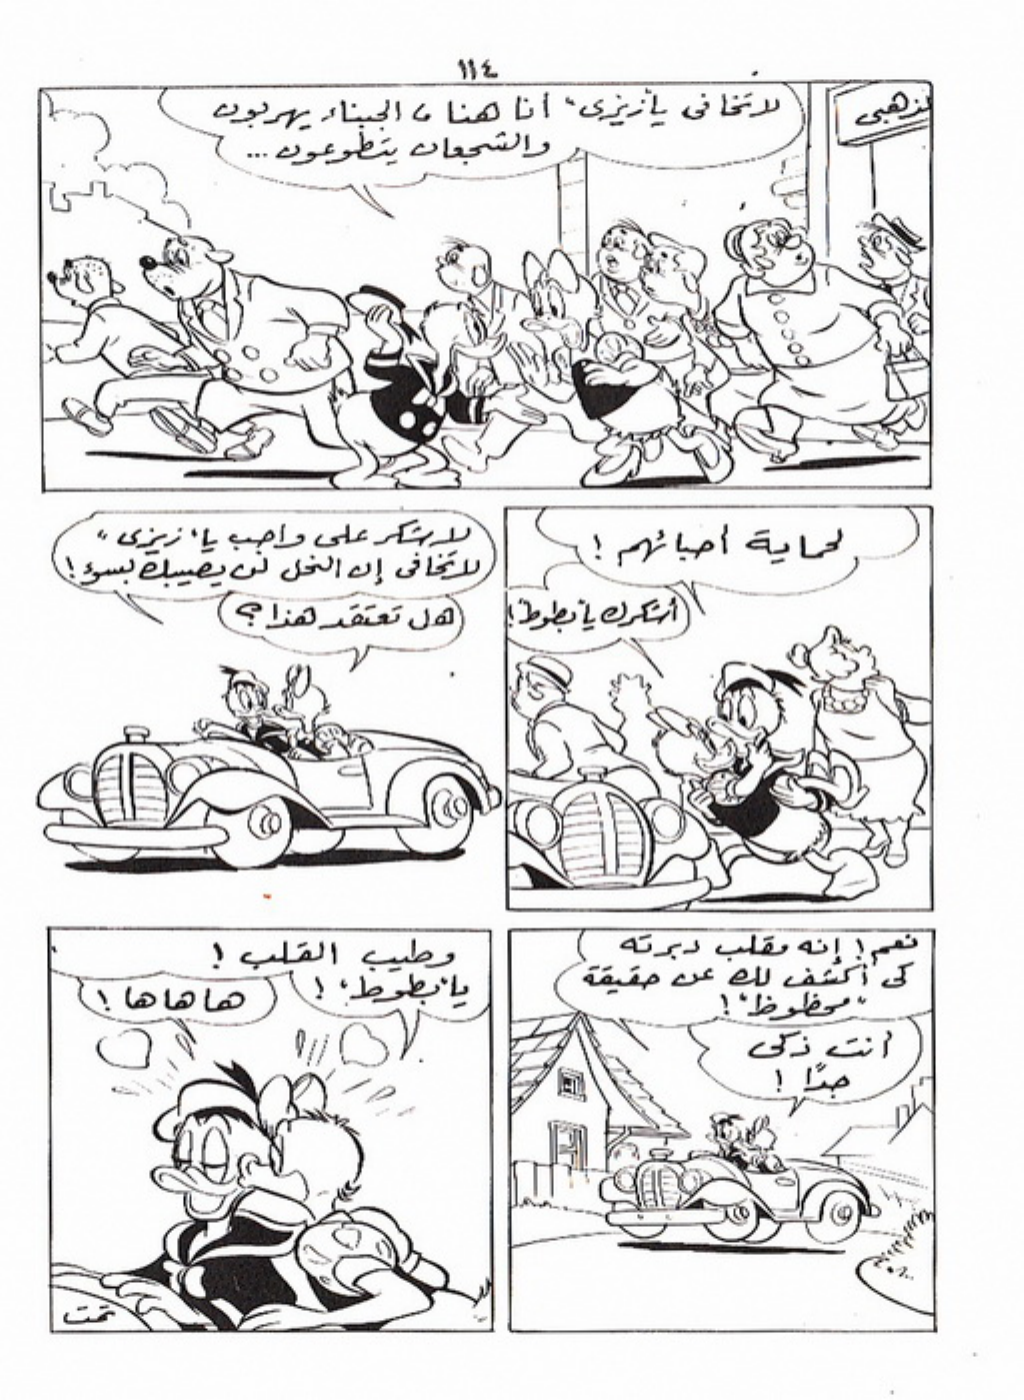 ١١٤
لا تخافى يا "زيزى" أنا هنا، الجبناء يهربون
والشجعان يتطوعون ...
لذهبى
لحماية أحبائهم !
أشكرك يا "بطوط" !
لا شكر على واجب يا "زيزى"
لا تخافى إن النحل لن يصيبك بسوء !
هل تعتقد هذا ؟
نعم ! إنه مقلب دبرته
كى أكشف لك عن حقيقة
"محظوظ" !
أنت ذكى
جدًا !
وطيب القلب !
يا "بطوط" !
ها ها ها !
تمت